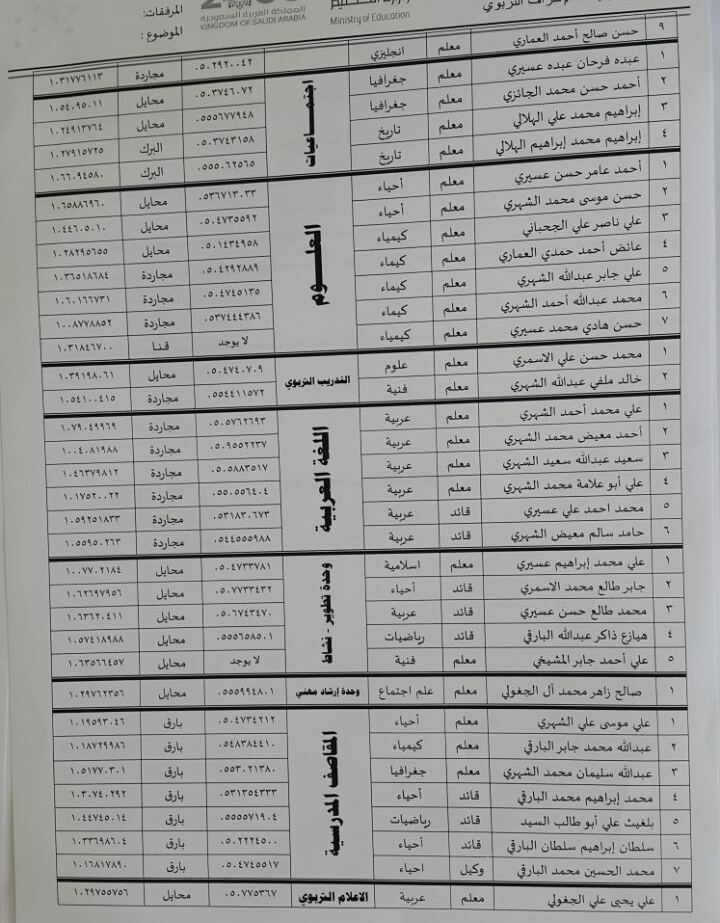 المرفقات:
المملكة العربية السعودية
KINGDOM OF SAUDI ARABIA
Ministry of Education
الموضوع:
٩ حسن صالح أحمد العماري معلم انجليزي ٠٥٠٢٩٢٠٠٤٢ مجاردة ١٠٣١٧٧٦١١٣
اجتماعيات
١ عبده فرحان عبده عسيري معلم جغرافيا ٠٥٠٣٧٤٦٠٧٢ محايل ١٠٥٤٠٩٥٠١١
٢ أحمد حسن محمد الجائزي معلم جغرافيا ٠٥٥٥٦٧٧٩٤٨ محايل ١٠٢٤٩١٣٧٦٤
٣ إبراهيم محمد علي الهلالي معلم تاريخ ٠٥٠٣٧٤٣١٥٨ البرك ١٠٢٧٩١٥٧٢٥
٤ إبراهيم محمد إبراهيم الهلالي معلم تاريخ ٠٥٥٥٠٦٢٥٦٥ البرك ١٠٦٦٠٩٤٥٨٠
العلوم
١ أحمد عامر حسن عسيري معلم أحياء ٠٥٣٦٧١٣٠٣٣ محايل ١٠٦٥٨٨٦٩٦٠
٢ حسن موسى محمد الشهري معلم أحياء ٠٥٠٤٧٣٥٥٩٢ محايل ١٠٤٤٦٠٥٠١٠
٣ علي ناصر علي الجحباني معلم كيمياء ٠٥٠١٤٣٤٩٥٨ محايل ١٠٢٨٢٩٥٦٥٥
٤ عائض أحمد حمدي العماري معلم كيماء ٠٥٠٤٢٩٢٨٨٩ مجاردة ١٠٣٦٥١٨٦٨٤
٥ علي جابر عبدالله الشهري معلم كيماء ٠٥٠٤٧٤٥١٣٥ مجاردة ١٠٦٠١٦٦٧٣١
٦ محمد عبدالله أحمد الشهري معلم كيماء ٠٥٣٧٤٤٤٣٨٦ مجاردة ١٠٠٨٧٧٨٨٥٢
٧ حسن هادي محمد عسيري معلم كيمياء لا يوجد قنا ١٠٣١٨٤٦٧٠٠
التدريب التربوي
١ محمد حسن علي الاسمري معلم علوم ٠٥٠٤٧٤٠٧٠٩ محايل ١٠٣٩١٩٨٠٦١
٢ خالد ملفي عبدالله الشهري معلم فنية ٠٥٥٤٤١١٥٧٢ مجاردة ١٠٥٤١٠٠٤١٥
اللغة العربية
١ علي محمد أحمد الشهري معلم عربية ٠٥٠٥٧٦٢٦٩٣ مجاردة ١٠٧٩٠٤٩٩٦٩
٢ أحمد معيض محمد الشهري معلم عربية ٠٥٠٩٥٥٢٢٣٧ مجاردة ١٠٠٤٠٨١٩٨٨
٣ سعيد عبدالله سعيد الشهري معلم عربية ٠٥٠٥٨٨٣٥١٧ مجاردة ١٠٤٦٣٧٩٨١٢
٤ علي أبو علامة محمد الشهري معلم عربية ٠٥٥٠٥٥٦٤٠٤ مجاردة ١٠١٧٥٢٠٠٢٢
٥ محمد احمد علي عسيري قائد عربية ٠٥٣١٨٣٠٦٧٣ مجاردة ١٠٥٩٢٥١٨٣٣
٦ حامد سالم معيض الشهري قائد عربية ٠٥٤٤٥٥٥٩٨٨ مجاردة ١٠٥٥٩٥٠٢٦٣
وحدة تطوير - نشاط
١ علي محمد إبراهيم عسيري معلم اسلامية ٠٥٠٤٧٣٣٧٨١ محايل ١٠٠٧٧٠٢١٨٤
٢ جابر طالع محمد الاسمري قائد أحياء ٠٥٠٧٧٣٣٤٣٢ محايل ١٠٦٢٦٩٧٩٥٦
٣ محمد طالع حسن عسيري قائد عربية ٠٥٠٦٧٤٣٤٧٠ محايل ١٠٦٣٦٢٠٤١١
٤ هيازع ذاكر عبدالله البارقي قائد رياضيات ٠٥٥٥٦٥٨٥٠١ محايل ١٠٥٧٤١٨٩٨٨
٥ علي أحمد جابر المشيخي معلم فنية لا يوجد محايل ١٠٦٣٥٦٦٤٥٧
١ صالح زاهر محمد آل الجغولي معلم علم اجتماع وحدة إرشاد مهني ٠٥٥٥٩٩٤٨٠١ محايل ١٠٢٩٧٦٢٣٥٦
المقاصف المدرسية
١ علي موسى علي الشهري معلم أحياء ٠٥٠٤٧٣٤٢١٢ بارق ١٠١٩٥٩٣٠٤٦
٢ عبدالله محمد جابر البارقي معلم كيمياء ٠٥٤٨٣٨٤٤١٠ بارق ١٠١٨٧٢٩٩٨٦
٣ عبدالله سليمان محمد الشهري معلم جغرافيا ٠٥٥٣٠٢١٣٨٠ بارق ١٠٥١٧٧٠٣٠١
٤ محمد إبراهيم محمد البارقي قائد أحياء ٠٥٣١٣٥٤٣٣٣ بارق ١٠٣٠٧٤٠٢٩٢
٥ بلغيث علي أبو طالب السيد قائد رياضيات ٠٥٥٥٥٧١٩٠٤ بارق ١٠٤٤٧٤٥٠١٤
٦ سلطان إبراهيم سلطان البارقي قائد أحياء ٠٥٠٢٢٢٤٥٠٠ بارق ١٠٣٣٦٩٨٦٠٤
٧ محمد الحسين محمد البارقي وكيل احياء ٠٥٠٤٧٤٥٥١٧ بارق ١٠١٦٨١٧٨٩٠
١ علي يحيى علي الجغولي معلم عربية الاعلام التربوي ٠٥٠٧٧٥٣٦٧ محايل ١٠٢٩٧٥٥٧٥٦